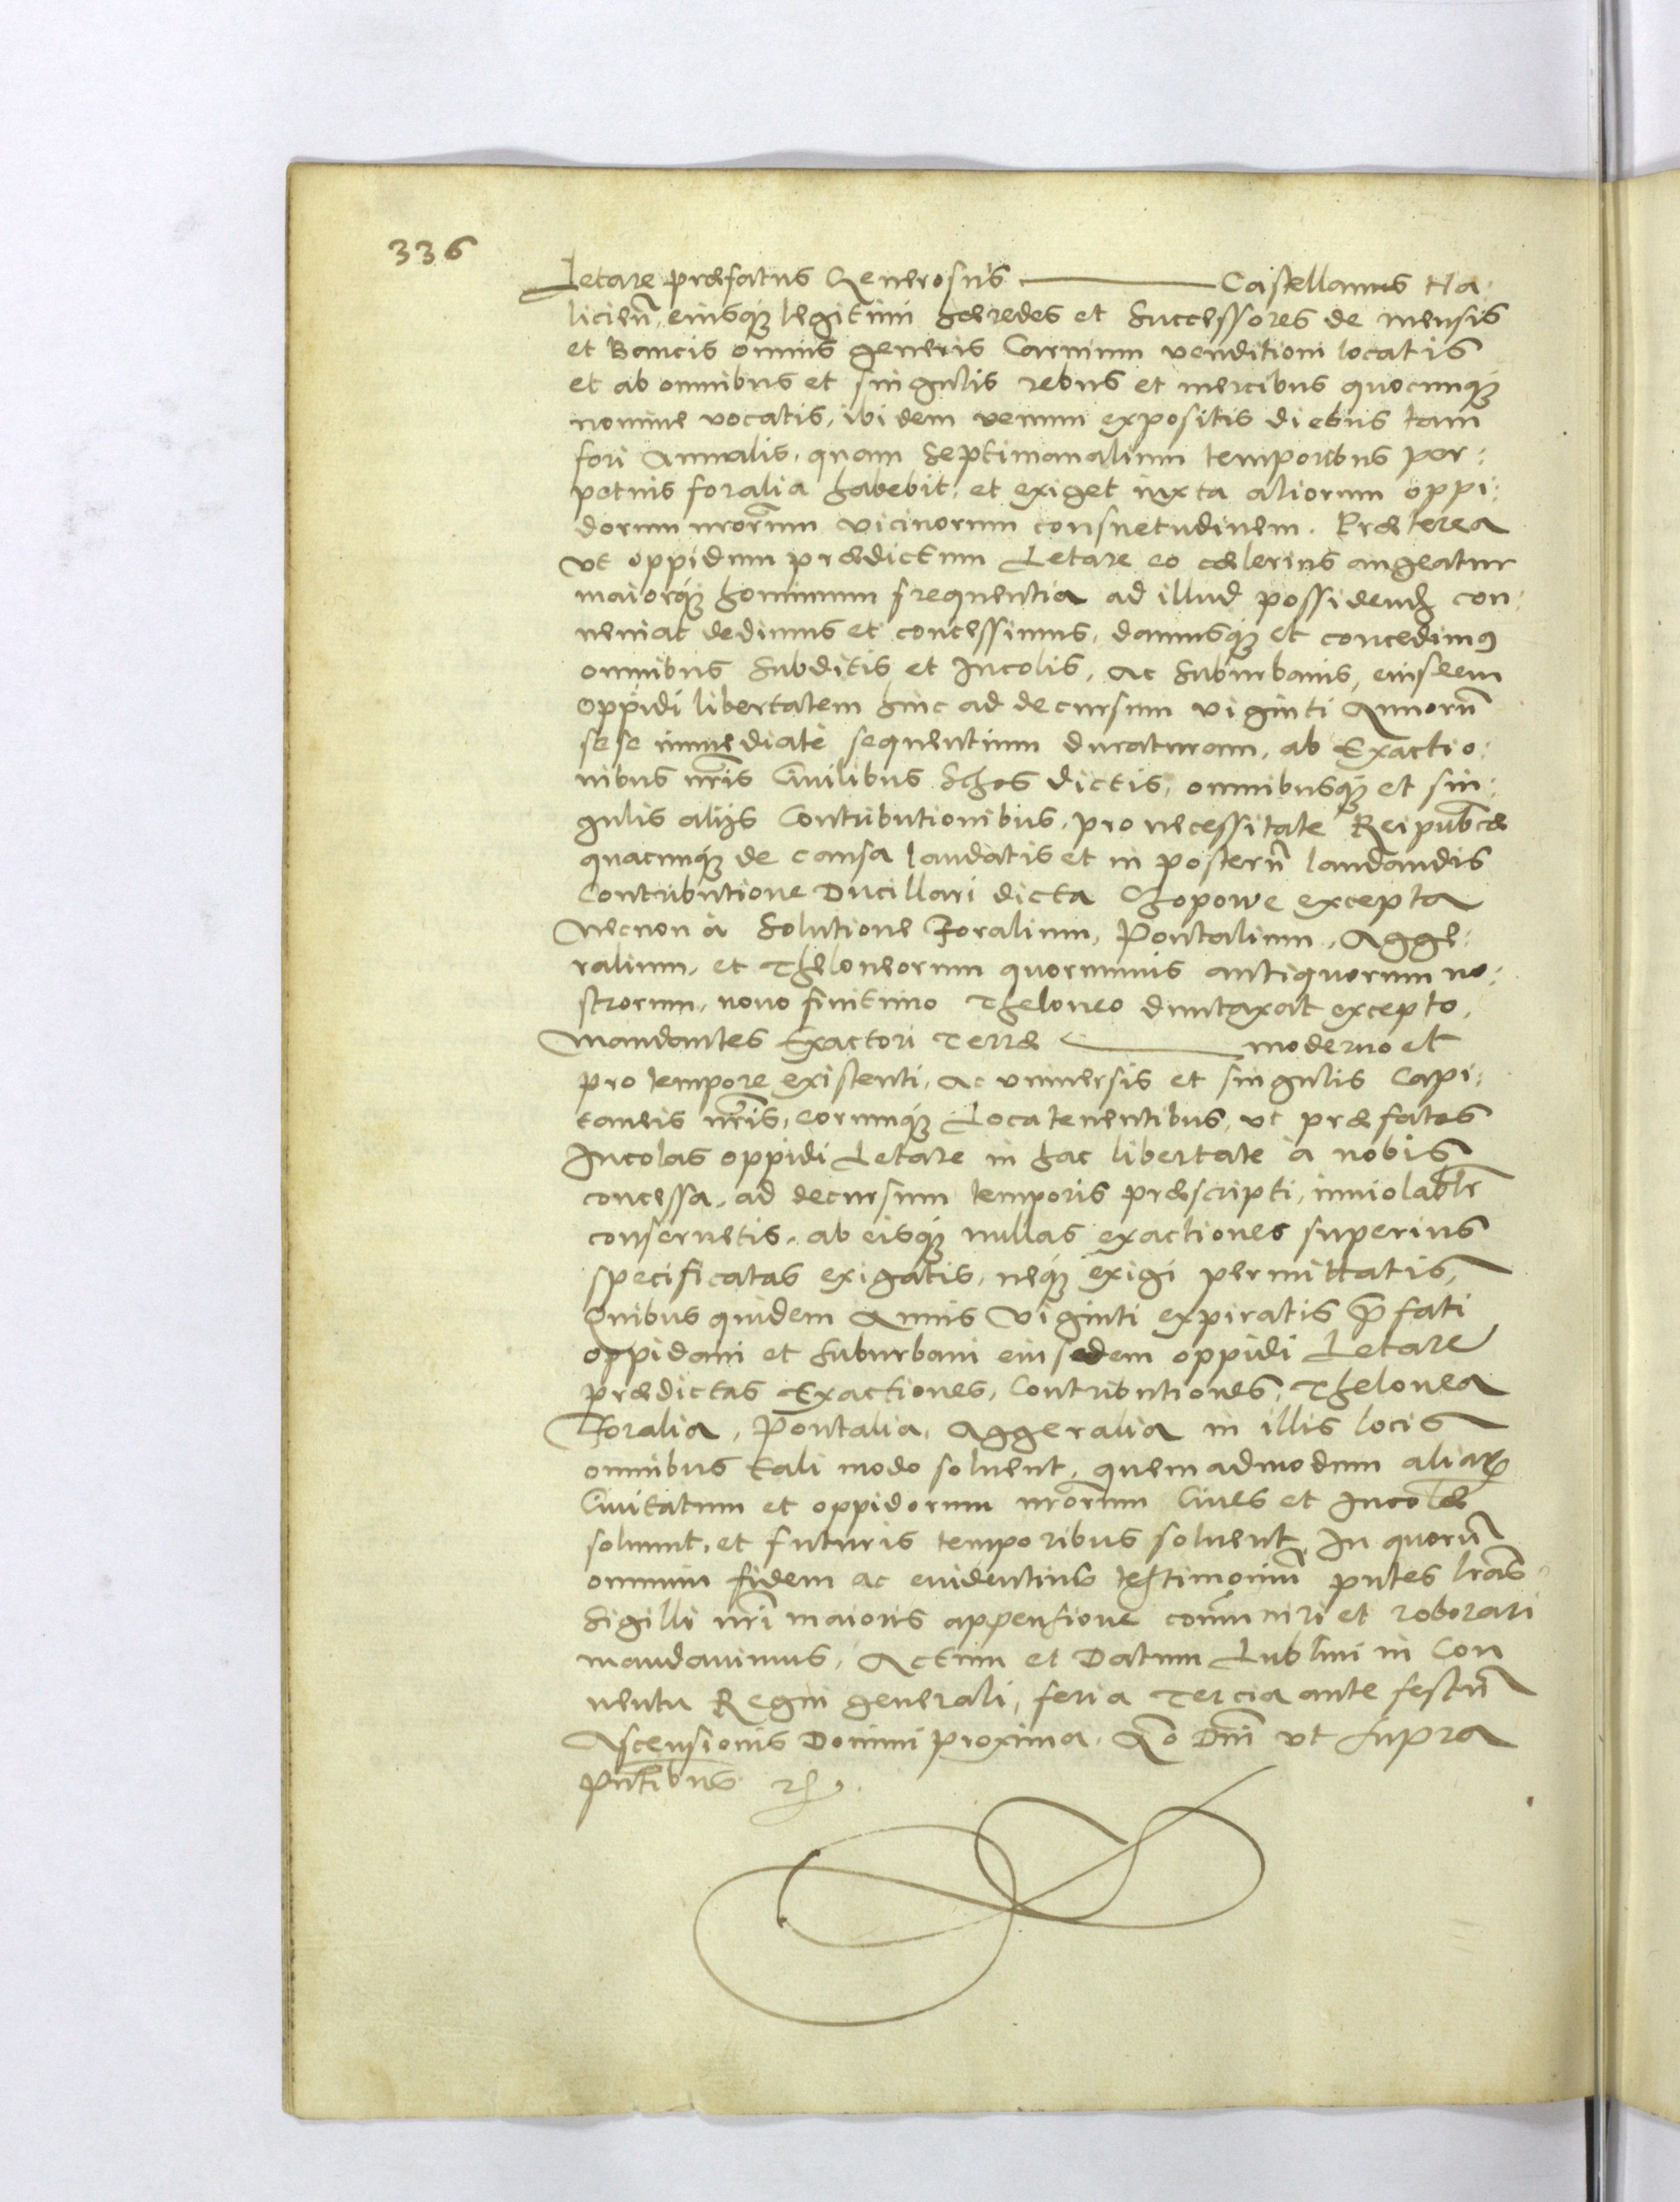 336
Letare præfatus Generosus ——— Castellanus Ha:
licień, eiusq́ue legitimi hæredes et Successores de mensis
et Bancis omnis generis Carnium venditioni locatis
et ab omnibus et singulis rebus et mercibus quocunq́ue
nomine vocatis, ibidem venum expositis diebus tam
fori Annalis, quam Septimanalium temporibus per:
petuis foralia habebit, et exiget iuxta aliorum oppi:
dorum nr̃orum vicinorum consuetudinem. Præterea
vt oppidum prædictum Letare eo cælerius augeatur
maiorq́ue hominum frequentia ad illud possidend̃ con:
ueniat dedimus et concessimus, damusq́ue et concedimꝰ
omnibus Subditis et Incolis, Ac Suburbanis, eiusdem
Oppidi libertatem hinc ad decursum viginti Annorũ
sese immediatè sequentium duraturam, ab Exactio:
nibus nr̃is Ciuilibus Schos dictis, omnibusq́ue et sin:
gulis alijs Contributionibus, pro necessitate Reipub̃cæ
quacunq́ue de causa laudatis et in posterũ laudandis
Contributione Ducillari dicta Chopowe excepta
Necnon à Solutione Foralium, Pontalium, Agge:
ralium, et Theloneorum quorumuis antiquorum no:
strorum, nouo finitimo Theloneo duntaxat excepto,
Mandantes Exactori Terræ ——— moderno et
pro tempore existenti, Ac vniuersis et singulis Capi:
taneis nr̃is, eorumq́ue Locatenentibus, vt præfatos
Incolas oppidi Letare in hac libertate à nobis
concessa, ad decursum temporis præscripti, inuiolabl̃r
conseruetis, ab eisq́ue nullas exactiones superius
specificatas exigatis, neq́ue exigi permittatis,
Quibus quidem Annis Viginti expiratis p̃fati
oppidani et suburbani eiusdem oppidi Letare
prædictas Exactiones, Contributiones, Thelonea
Foralia, Pontalia, Aggeralia in illis locis
omnibus tali modo soluent, quemadmodum aliaꝝ
Ciuitatum et oppidorum nr̃orum Ciues et Incolæ
soluunt, et futuris temporibus soluent, In quorũ
omnium fidem ac euidentius testimoniũ pñtes lr̃as
Sigilli nr̃i maioris appensione com̃uniri et roborari
mandauimus, Actum et Datum Lublini in Con
uentu Regni generali, feria Tercia ante festũ
Ascensionis Domini proxima. Aõ Dñi vt supra
Pñtibus ꝛc.